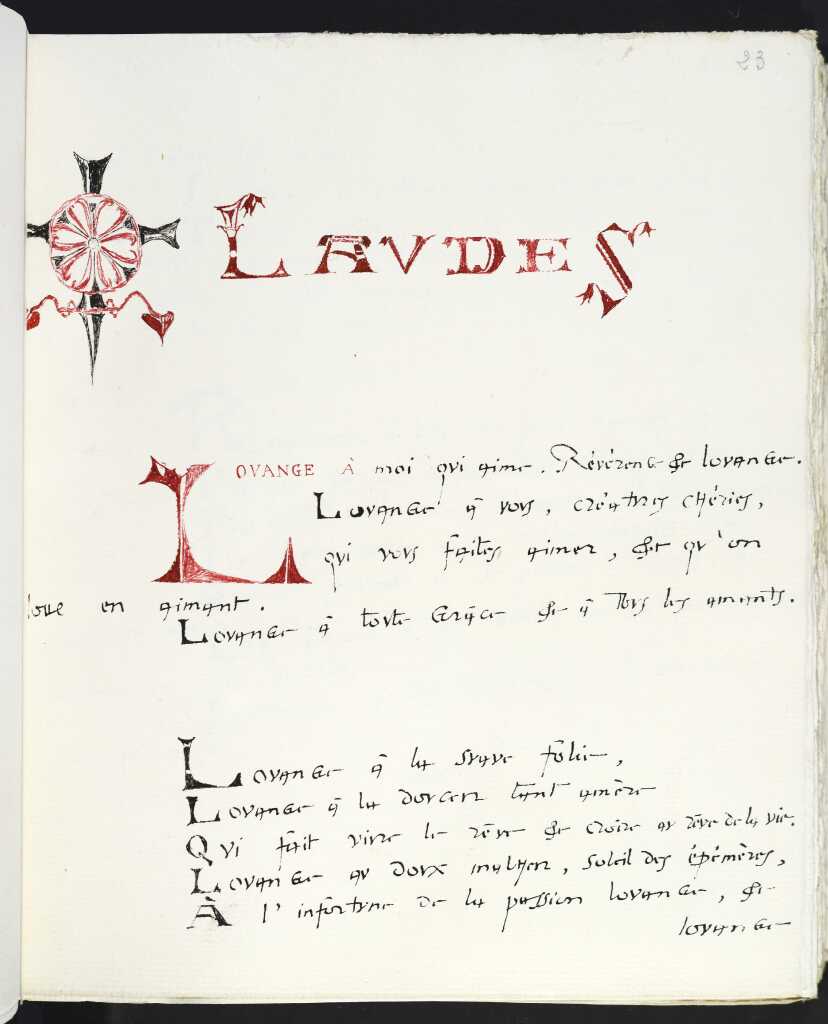 23
LAVDES
LOVANGE À moi qvi aime. Révérence & lovange.
Lovange à vovs, créatvres chéries,
qvi vovs faites aimer, & qv'on
love en aimant.
Lovange à tovte Grâce & à Tovs les amants.
Lovange à la svave folie,
Lovange à la dovcevr tant amère
Qvi fait vivre le rêve & croire av rêve de la vie.
Lovange av dovx malhevr, soleil des éphémères,
À l'infortvne de la passion lovange, &
lovange